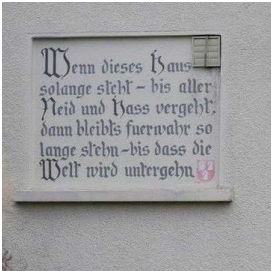 Wenn dieses Haus
solange steht - bis aller
Neid und Hass vergeht,
dann bleibts fuerwahr so
lange stehn - bis dass die
Welt wird untergehn